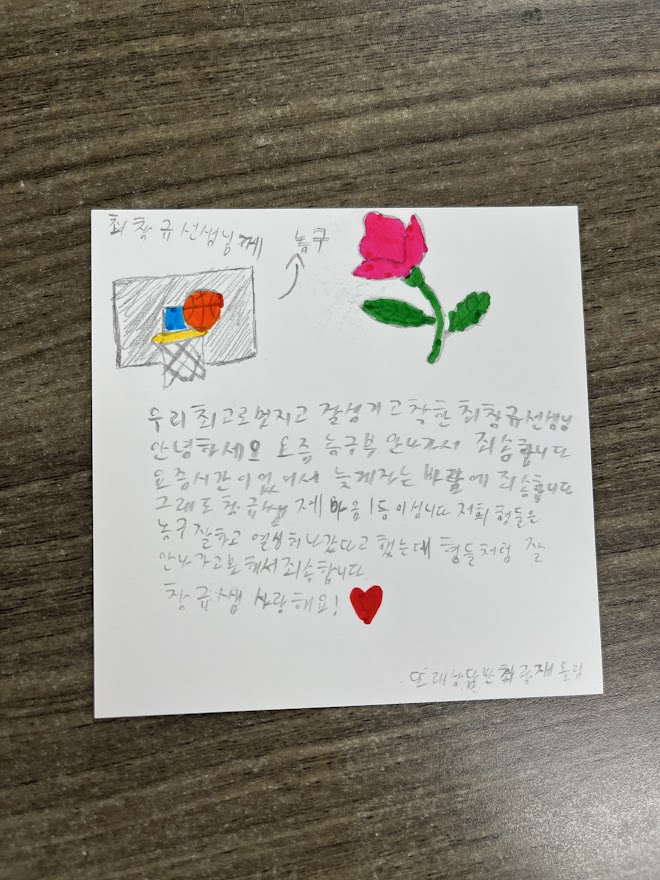 최창규선생님께
농구
우리 최고로 멋지고 잘생기고 착한 최창규선생님
안녕하세요 요즘 농구부 안나가서 죄송합니다
요즘시간이 없어서 늦게자는 바람에 죄송합니다
그래도 창규쌤 제 마음 1등이십니다 저희 형들은
농구 잘하고 열심히나갔다고 했는데 형들처럼 잘
안나가고 못해서죄송합니다
창규쌤 사랑해요!
또래상담반 올림